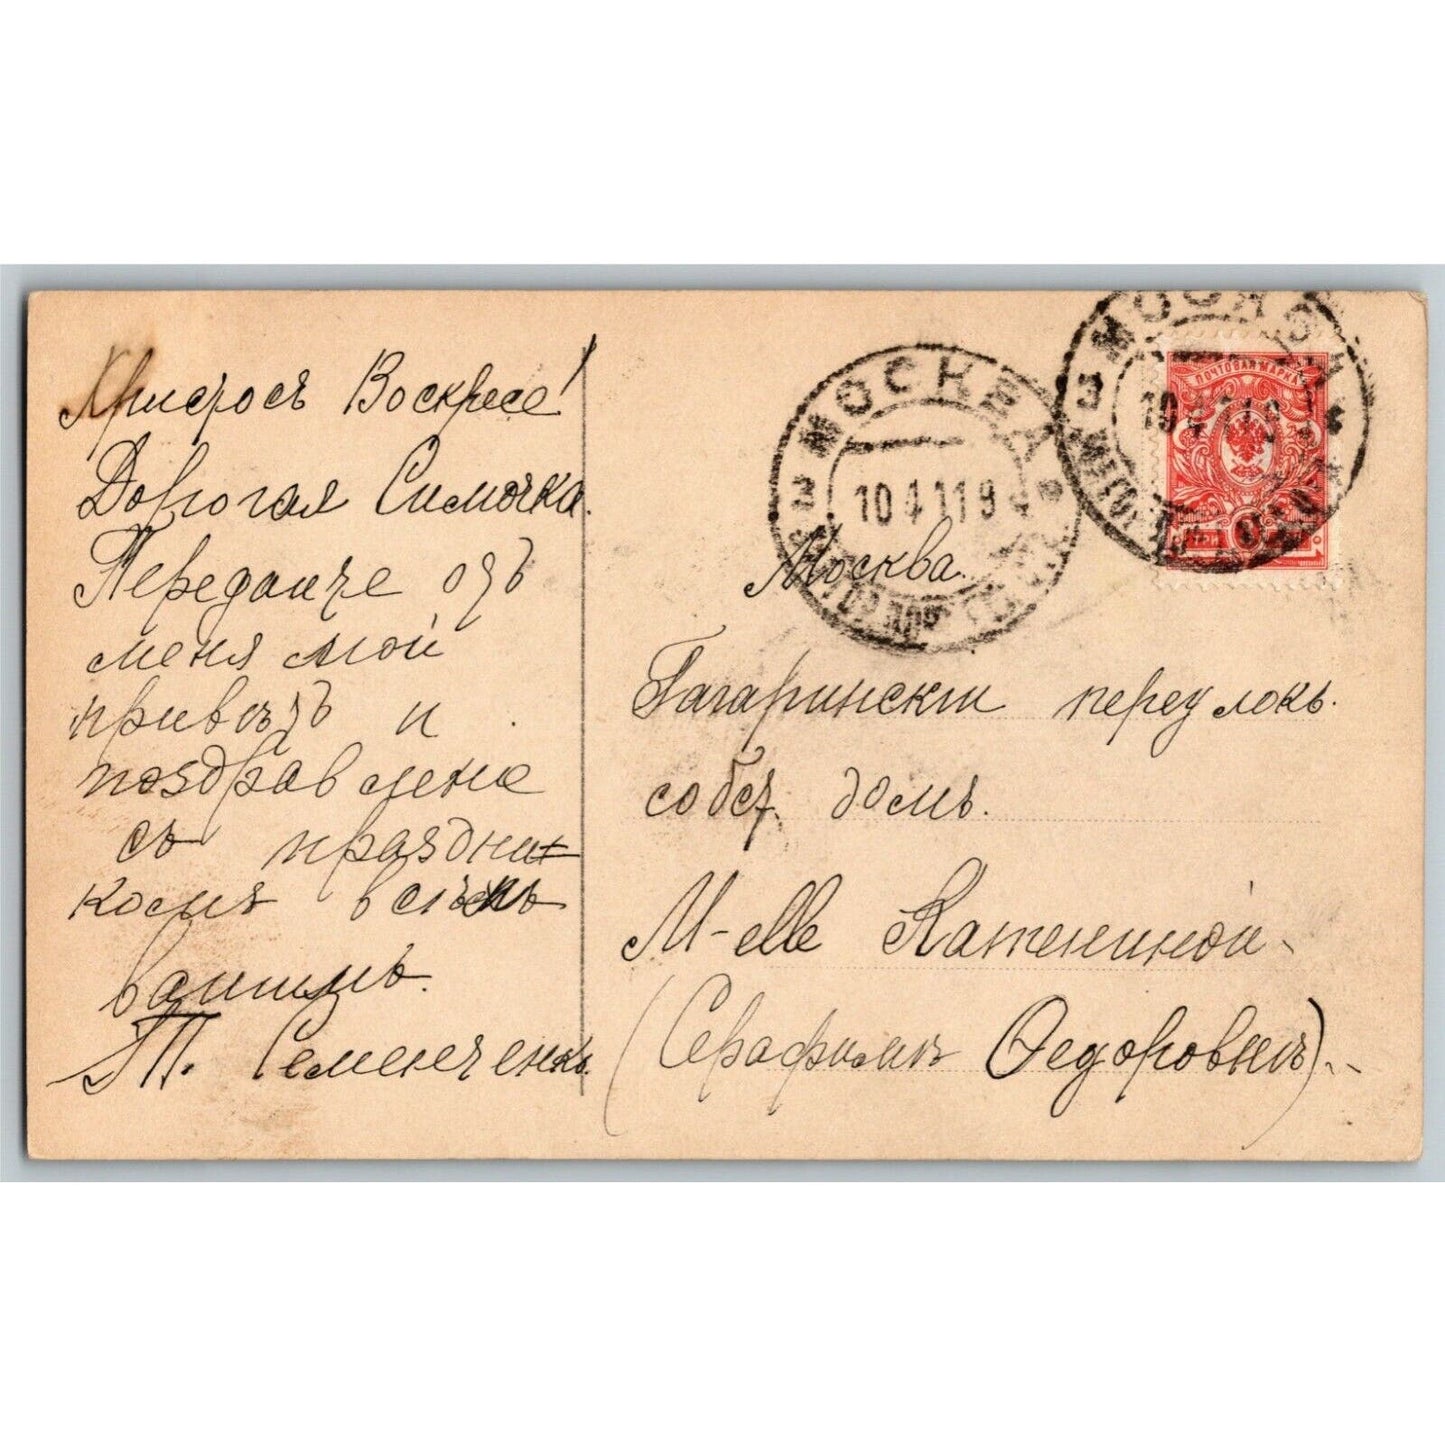 Христосъ Воскресе!
Дорогая Симочка.
Передайте отъ
меня мой
привѣтъ и
поздравленiе
съ праздни-
комъ всѣмъ
вашимъ.
Т. Семенченко.
МОСКВА
10 4 11 9
МОСКВА
10 4 11 9
ПОЧТОВАЯ МАРКА
Москва.
Гагаринскiй переулокъ.
собст. домъ.
М-elle Кажениной
(Серафимѣ Ѳедоровнѣ).